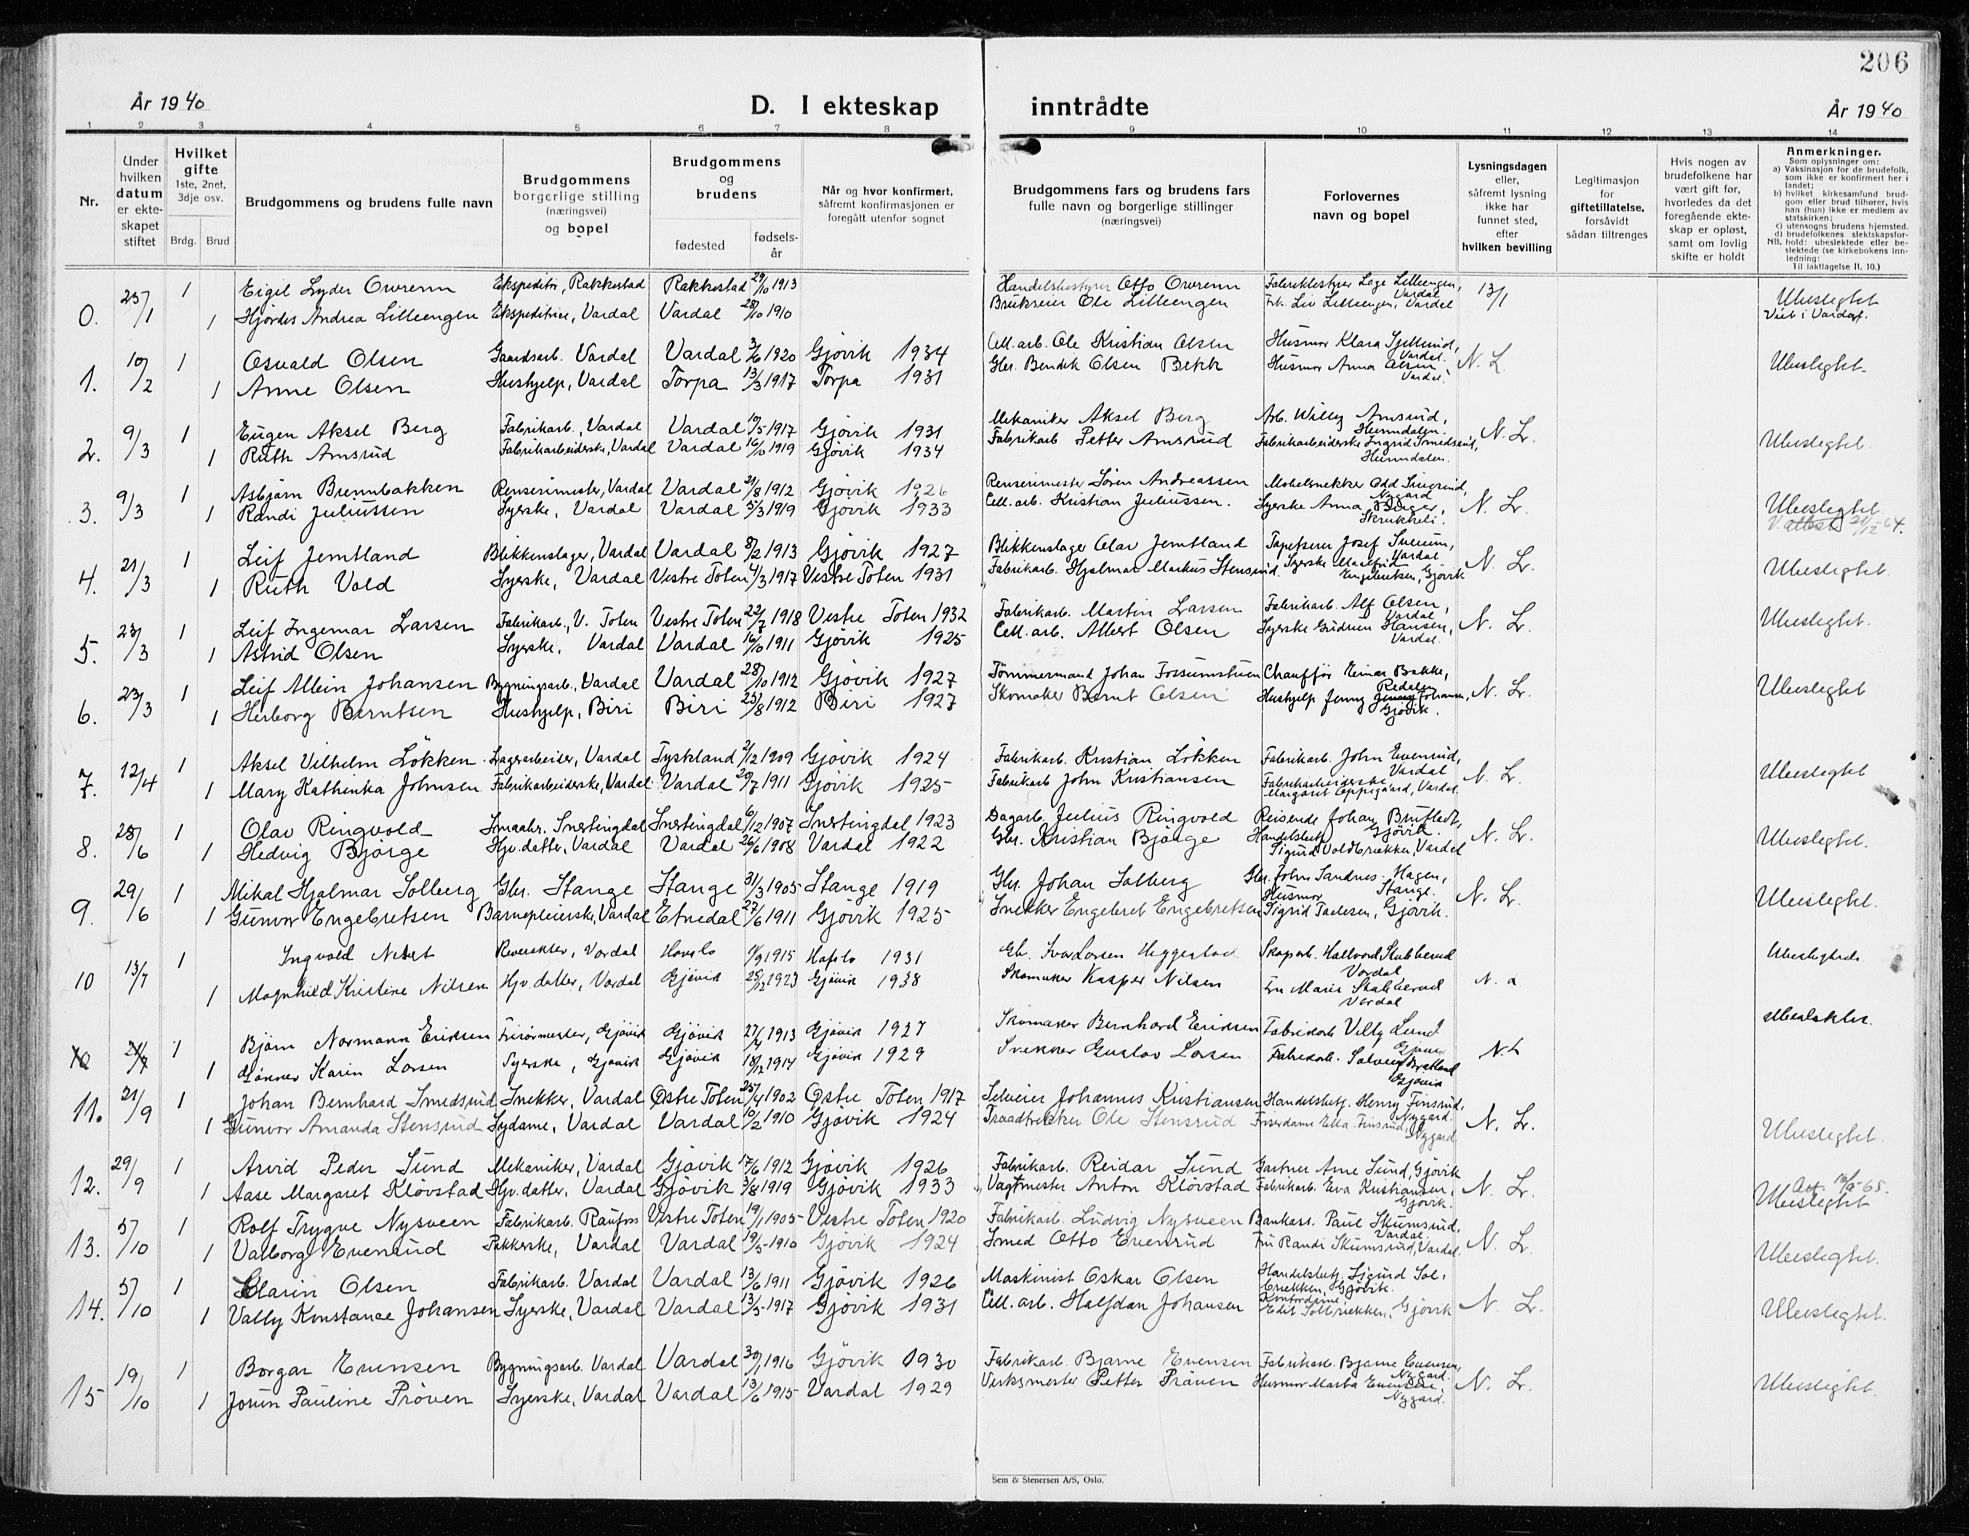 206
År 1940
D. I ekteskap inntrådte
År 1940
1 2 3 4 5 6 7 8 9 10 11 12 13 14
Nr.
Under hvilken datum er ekte- skapet stiftet
Hvilket gifte 1ste, 2net, 3dje osv.
Brdg. Brud
Brudgommens og brudens fulle navn
Brudgommens borgerlige stilling (næringsvei) og bopel
Brudgommens og brudens
fødested
fødsels- år
Når og hvor konfirmert, såfremt konfirmasjonen er foregått utenfor sognet
Brudgommens fars og brudens fars fulle navn og borgerlige stillinger (næringsvei)
Forlovernes navn og bopel
Lysningsdagen eller, såfremt lysning ikke har funnet sted, efter hvilken bevilling
Legitimasjon for giftetillatelse, forsåvidt sådan tiltrenges
Hvis nogen av brudefolkene har vært gift før, hvorledes da det foregående ekte- skap er opløst, samt om lovlig skifte er holdt
Anmerkninger.
Som oplysninger om:
a) Vaksinasjon for de brudefolk, som ikke er konfirmert her i landet;
b) hvilket kirkesamfund brud- gom eller brud tilhører, hvis han (hun) ikke er medlem av statskirken;
c) utensogns brudens hjemsted.
d) brudefolkenes slektskapsfor- hold: ubeslektede eller be- slektede (se kirkebokens inn- ledning:
NB.
Til iakttagelse II. 10.)
0. 25/1 1 Eigil Lyder Overenn Ekspeditør, Rakkestad Rakkestad 29/10 1913 Handelsbestyrer Otto Overenn 13/1 Ubeslegtet
1 Hjørdis Andrea Lilleengen Ekspeditrice, Vardal Vardal 28/10 1910 Brukseier Ole Lilleengen Frk. Liv Lilleengen, Vardal
1. 10/2 1 Osvald Olsen Gaardsarb. Vardal Vardal 3/6 1920 Gjøvik 1934 Cell. arb. Ole Kristian Olsen N. L. Ubeslegtet
1 Anne Olsen Hushjelp, Vardal Torpa 13/3 1917 Torpa 1931 Gbr. Bendik Olsen Bekk Husmor Anna Olsen, Vardal.
2. 9/3 1 Eugen Aksel Berg Fabrikarb., Vardal Vardal 10/5 1917 Gjøvik 1931 Mekaniker Aksel Berg Arb. Willy Amsrud, Hunndalen. N. L. Ubeslegtet.
1 Ruth Amsrud Fabrikarbeiderske, Vardal Vardal 16/10 1919 Gjøvik 1934 Fabrikarb. Petter Amsrud Fabrikarbeiderske Ingrid Smedsrud, Hunndalen.
3. 9/3 1 Asbjørn Brennbakken Renserimester, Vardal Vardal 21/8 1912 Gjøvik 1926 Renserimester Søren Andreassen N. L. Ubeslegtet.
1 Randi Juliussen Syerske, Vardal Vardal 5/3 1919 Gjøvik 1933 Cell. arb. Kristian Juliussen. Syerske Anna Berger, Skrukkeli.
4. 21/3 1 Leif Jemtland Blikkenslager, Vardal Vardal 8/2 1913 Gjøvik 1927 Blikkenslager Olav Jemtland N. L. Ubeslegtet.
1 Ruth Vold Syerske, Vardal Vestre Toten 4/3 1917 Vestre Toten 1931 Fabrikarb. Hjalmar Markus Stensrud.
5. 23/3 1 Leif Ingemar Larsen Fabrikarb., V. Toten Vestre Toten 22/7 1918 Vestre Toten 1932 Fabrikarb. Martin Larsen Fabrikarb. Alf Olsen, Vardal N. L. Ubeslegtet.
1 Astrid Olsen Syerske, Vardal Vardal 16/10 1911 Gjøvik 1925 Cell. arb. Albert Olsen Syerske Gudrun Hansen, Vardal.
6. 23/3 1 Leif Allein Johansen Bygningsarb., Vardal Vardal 28/10 1912 Gjøvik 1927 Tømmermand Johan Fossumstuen Chauffør Einar Bakke, Redalen N. L. Ubeslegtet
1 Herborg Berntsen Hushjelp, Biri Biri 25/8 1912 Biri 1927 Skomaker Bernt Olsen
7. 12/4 1 Aksel Vilhelm Løkken Lagerarbeider, Vardal Tyskland 2/12 1909 Gjøvik 1924 Fabrikarb. Kristian Løkken Fabrikarb. John Evensrud, Vardal N. L. Ubeslegtet
1 Mary Kathinka Johnsen Fabrikarbeiderske, Vardal Vardal 20/7 1911 Gjøvik 1925 Fabrikarb John Kristiansen Fabrikarbeiderske Margaret Oppegaard, Vardal.
8. 23/6 1 Olav Ringvold Smaabr. Snertingdal Snertingdal 6/12 1907 Snertingdal 1923 Dagarb. Julius Ringvold Reisende Johan Bruflodt, Gjøvik. N. L. Ubeslegtet.
1 Hedvig Bjørge Hjv. datter, Vardal Vardal 26/6 1908 Vardal 1922 Gbr. Kristian Bjørge
9. 29/6 1 Mikal Hjalmar Solberg Gbr. Stange Stange 31/3 1905 Stange 1919 Gbr. Johan Solberg N. L. Ubeslegtet.
1 Gunvor Engebretsen Barnepleierske, Vardal Etnedal 27/6 1911 Gjøvik 1925 Snekker Engebret Engebretsen Husmor Sigrid Paulsen, Gjøvik.
10 13/7 1 Ingvald Nebet Vardal Hafslo 1915 Hafslo 1931
1 Magnhild Kristine Nilsen Hjv. datter, Vardal Gjøvik 25/12 1923 Gjøvik 1938 Skomaker Kasper Nilsen
1 Bjørn Normann Eriksen Frisørmester, Gjøvik Gjøvik 27/4 1913 Gjøvik 1927 Skomaker Bernhard Eriksen Fabrikarb Villy Lund N. L
1 Karin Larsen Syerske, Gjøvik Gjøvik 18/12 1914 Gjøvik 1929 Snekker Gustav Larsen
11. 21/9 1 Johan Bernhard Smedsrud Snekker, Vardal Østre Toten 25/4 1902 Østre Toten 1917 Selveier Johannes Kristiansen Handelsbetj. Henry Finsrud, Nygard. N. L. Ubeslegtet.
1 Gunvor Amanda Stensrud Sydame, Vardal Vardal 10/2 1910 Gjøvik 1924 Traadtrekker Ole Stensrud
12. 29/9 1 Arvid Peder Sund Mekaniker, Vardal Gjøvik 17/6 1912 Gjøvik 1926 Fabrikarb. Reidar Sund Gartner Arne Sund, Gjøvik N. L. Ubeslegtet
1 Aase Margaret Kløvstad Hjv. datter, Vardal Gjøvik 3/8 1919 Gjøvik 1933 Vagtmester Anton Kløvstad Fabrikarb. Eva Kristiansen, Gjøvik.
13. 5/10 1 Rolf Trygve Nysveen Fabrikarb. Raufoss Vestre Toten 19/1 1905 Vestre Toten 1920 Fabrikarb. Ludvig Nysveen Bankass. Paul Skumsrud, Vardal. N. L. Ubeslegtet.
1 Valborg Evensrud Pakkerske, Vardal Vardal 19/5 1910 Gjøvik 1924 Smed Otto Evensrud Fru Randi Skumsrud, Vardal.
14. 5/10 1 Clarin Olsen Fabrikarb. Vardal Vardal 13/6 1911 Gjøvik 1926 Maskinist Oskar Olsen N. L. Ubeslegtet.
1 Vally Konstance Johansen Syerske, Vardal Vardal 13/5 1917 Gjøvik 1931 Cell. arb. Halfdan Johansen
15 19/10 1 Borgar Evensen Bygningsarb. Vardal Vardal 30/1 1916 Gjøvik 1930 Fabrikarb. Bjarne Evensen Fabrikarb. Bjarne Evensen, Nygard. N. L. Ubeslegtet.
1 Jorun Pauline Prøven Syerske, Vardal Vardal 13/6 1915 Vardal 1929 Verksmester Petter Prøven Husmor Marta Evensen, Nygard.
Sem & Stenersen A/S, Oslo.